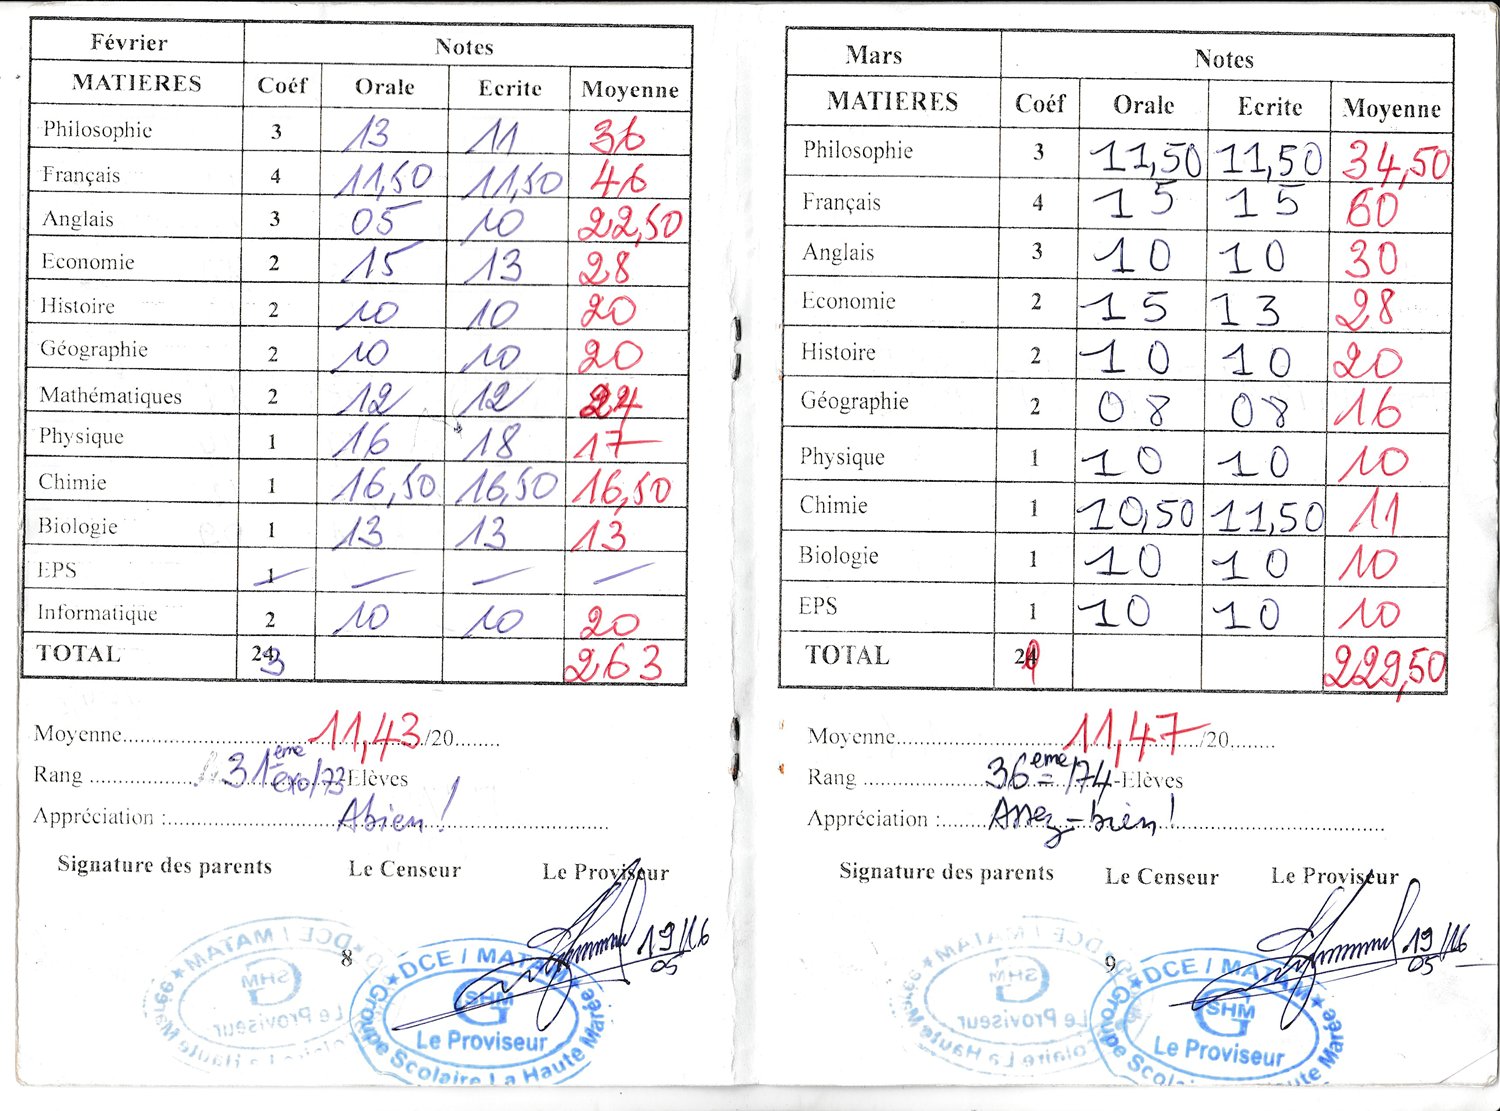 Février Notes
MATIERES Coéf Orale Ecrite Moyenne
Philosophie 3 13 11 36
Français 4 11,50 11,50 46
Anglais 3 05 10 22,50
Economie 2 15 13 28
Histoire 2 10 10 20
Géographie 2 10 10 20
Mathématiques 2 12 12 24
Physique 1 16 18 17
Chimie 1 16,50 16,50 16,50
Biologie 1 13 13 13
EPS 1 — — —
Informatique 2 10 10 20
TOTAL 23 263
Moyenne 11,43 /20
Rang 31ème exo/73 Elèves
Appréciation : Abien !
Signature des parents Le Censeur Le Proviseur
19/05/16
8
DCE / MATAM
SHM
Le Proviseur
Groupe Scolaire La Haute Marée
Mars Notes
MATIERES Coéf Orale Ecrite Moyenne
Philosophie 3 11,50 11,50 34,50
Français 4 15 15 60
Anglais 3 10 10 30
Economie 2 15 13 28
Histoire 2 10 10 20
Géographie 2 08 08 16
Physique 1 10 10 10
Chimie 1 10,50 11,50 11
Biologie 1 10 10 10
EPS 1 10 10 10
TOTAL 229,50
Moyenne 11,47 /20
Rang 36ème /74 -Elèves
Appréciation : Assez-bien !
Signature des parents Le Censeur Le Proviseur
19/05/16
9
DCE / MATAM
SHM
Le Proviseur
Groupe Scolaire La Haute Marée